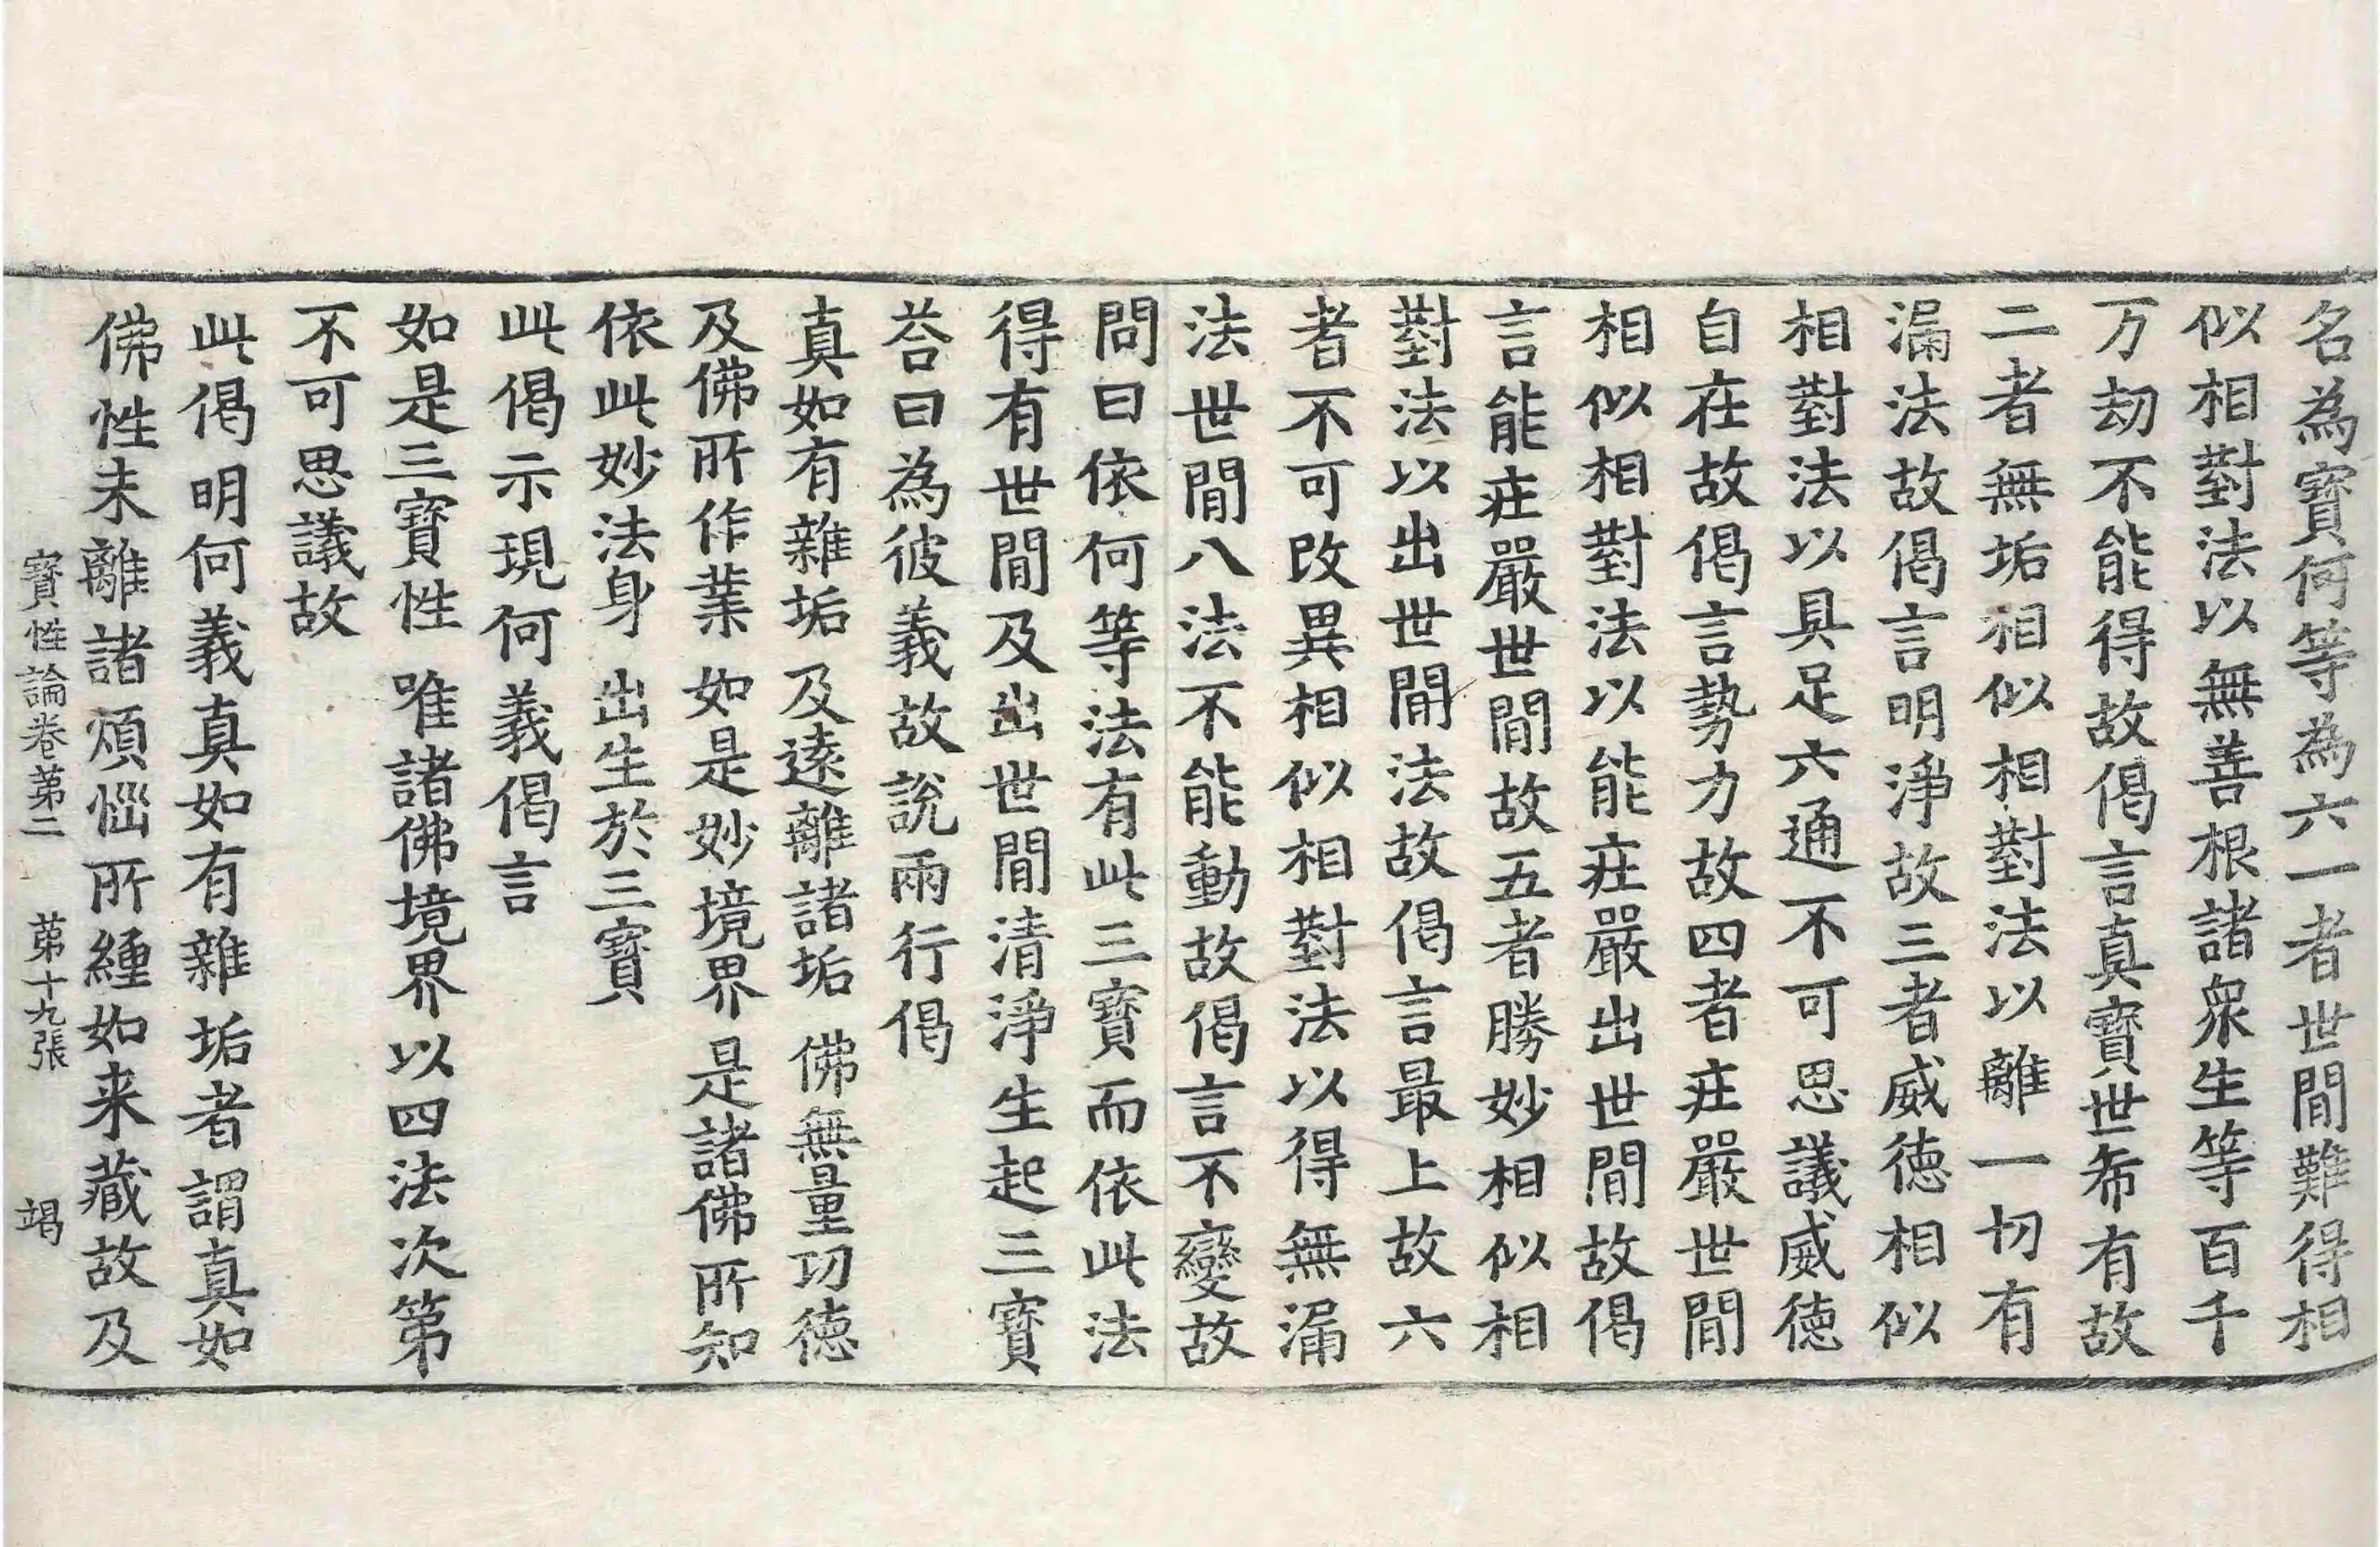 名為寶何等為六一者世間難得相
似相對法以無善根諸衆生等百千
万劫不能得故偈言真寶世希有故
二者無垢相似相對法以離一切有
漏法故偈言明淨故三者威徳相似
相對法以具足六通不可思議威徳
自在故偈言勢力故四者莊嚴世間
相似相對法以能莊嚴出世間故偈
言能莊嚴世間故五者勝妙相似相
對法以出世間法故偈言最上故六
者不可改異相似相對法以得無漏
法世間八法不能動故偈言不變故
問曰依何等法有此三寶而依此法
得有世間及出世間清淨生起三寶
荅曰為彼義故說兩行偈
真如有雜垢 及遠離諸垢 佛無量功徳
及佛所作業 如是妙境界 是諸佛所知
依此妙法身 出生於三寶
此偈示現何義偈言
如是三寶性 唯諸佛境界 以四法次第
不可思議故
此偈明何義真如有雜垢者謂真如
佛性未離諸煩惱所纏如来藏故及
寶性論卷第二 第十九張 竭